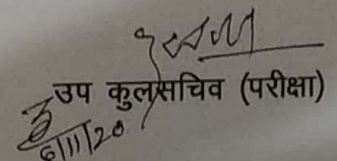 उप कुलसचिव (परीक्षा)
6/11/20